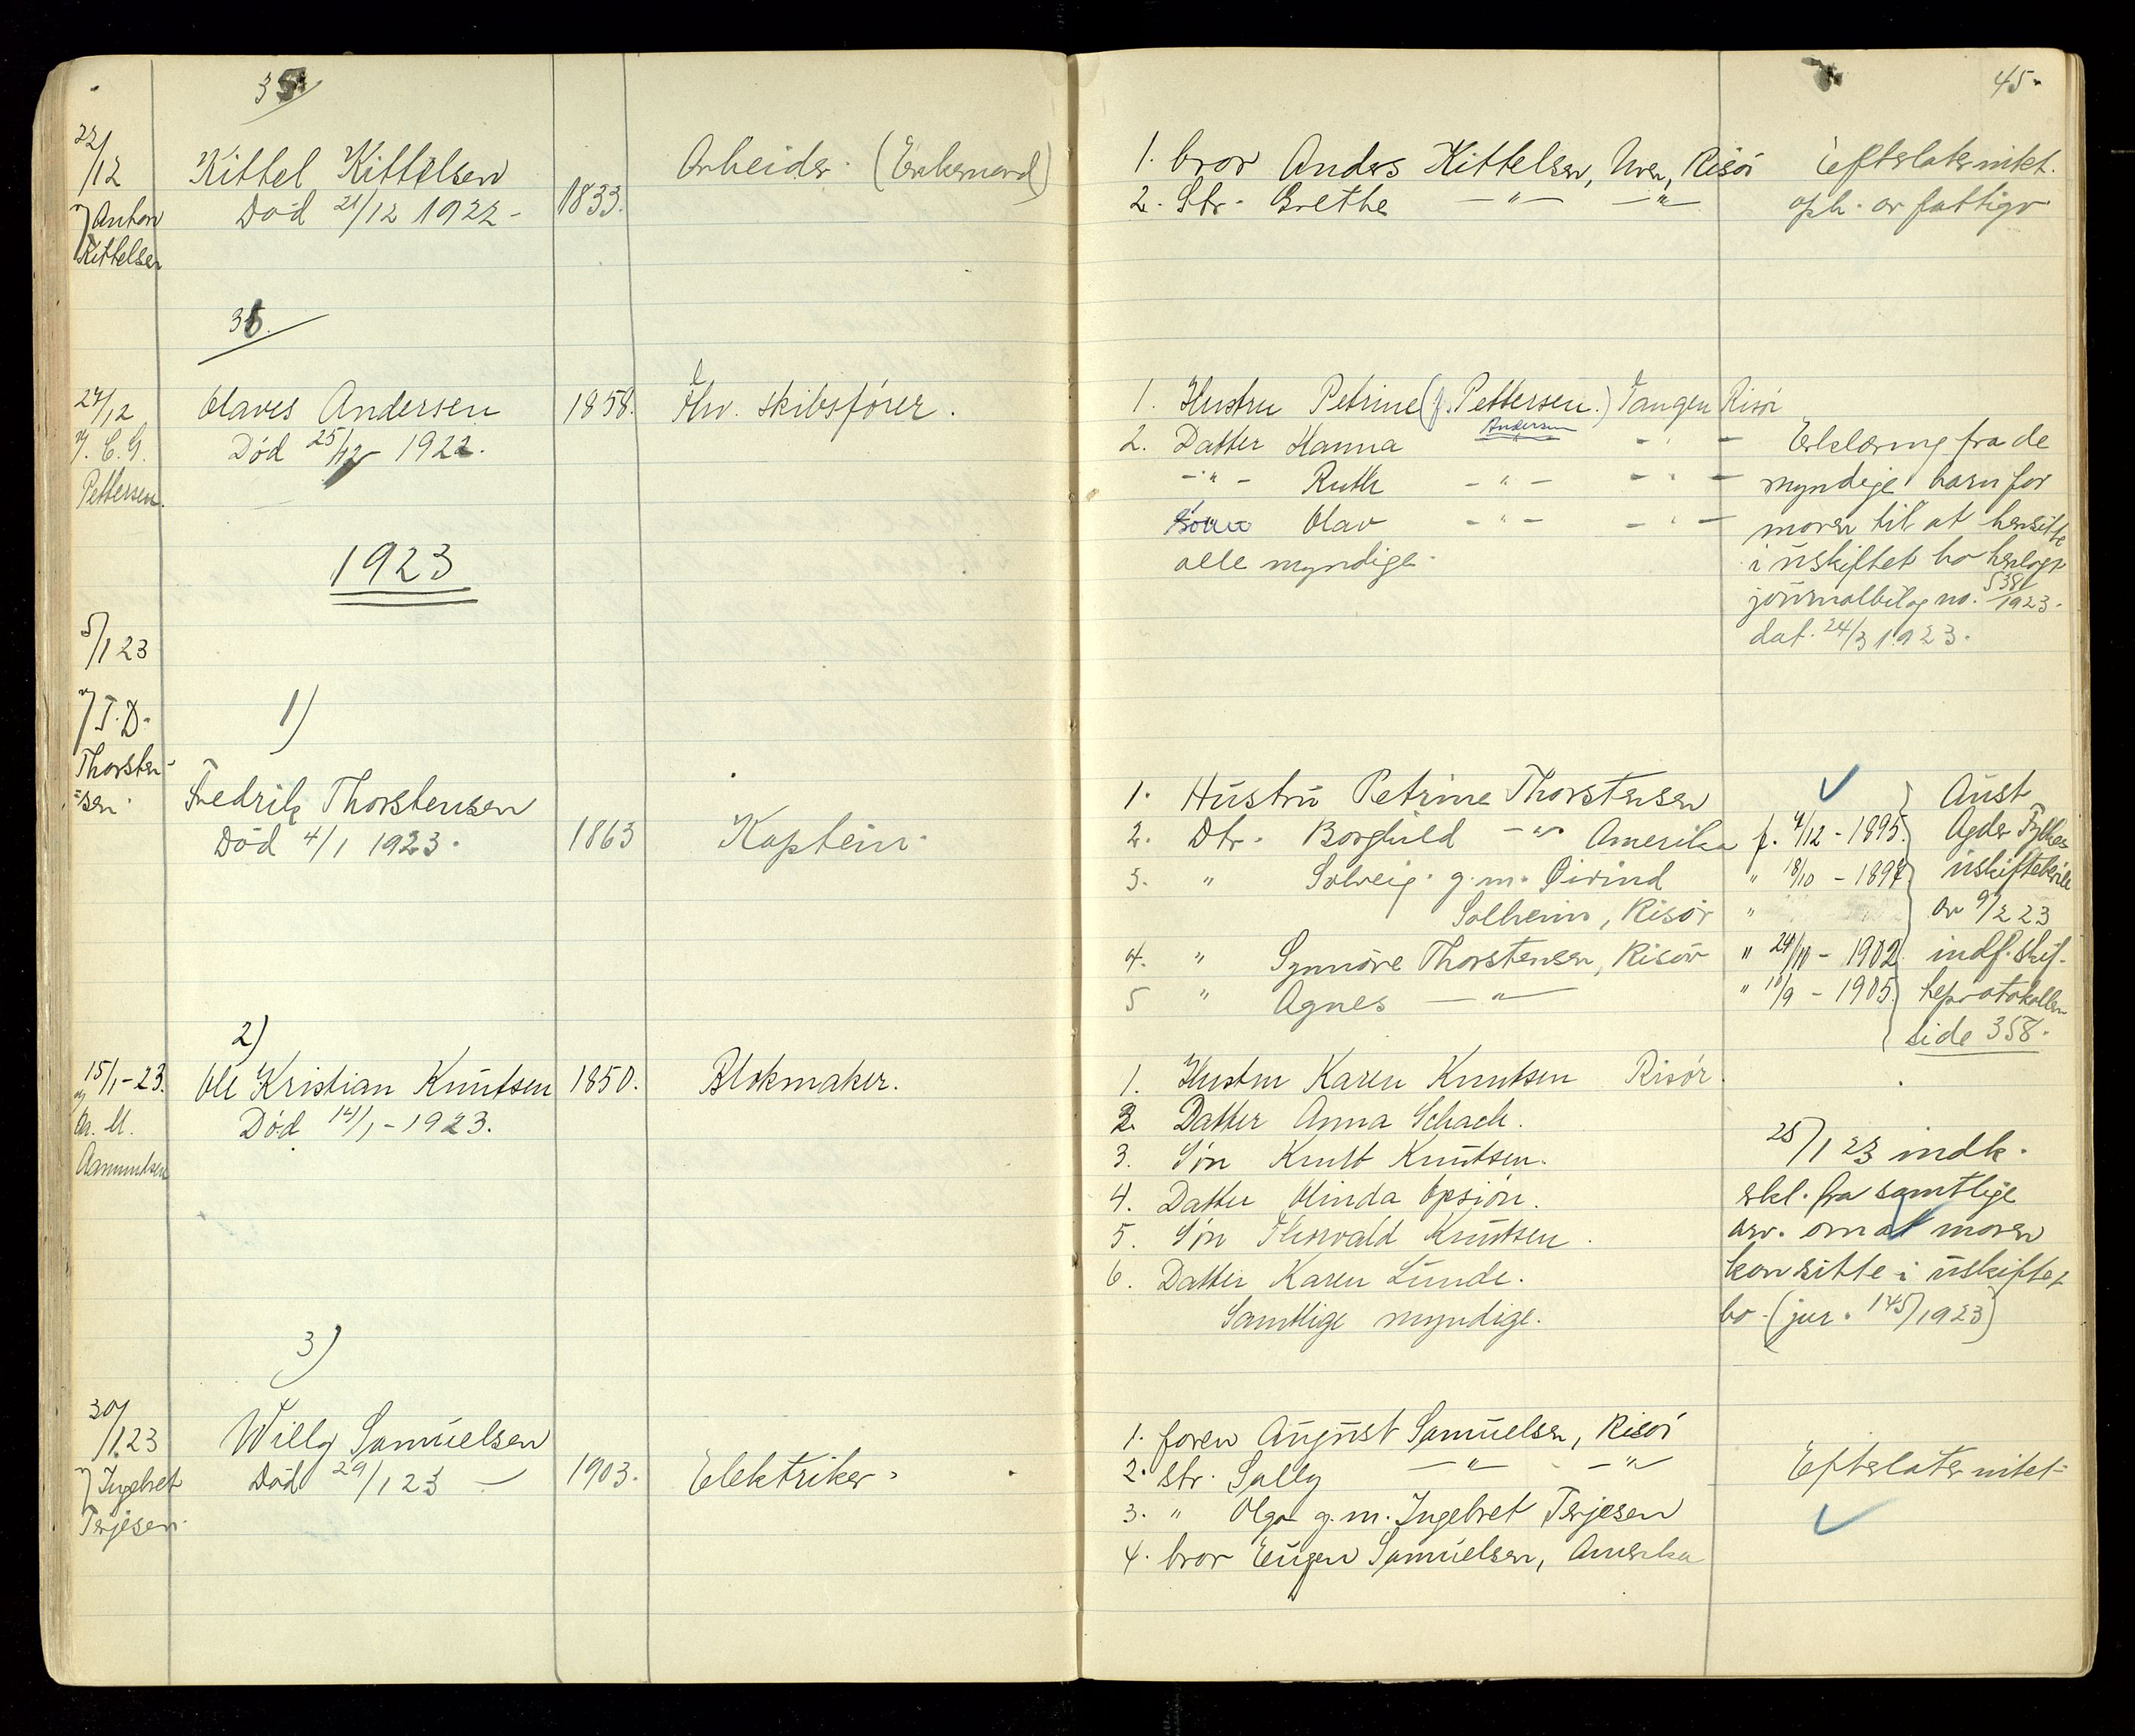 45.
22/12
v/ Anton
Kittelsen
Kittel Kittelsen
Død 21/12 1922 -
1833.
Arbeider. (Enkemand)
1. bror Anders Kittelsen, Uren, Risør
2. Str. Grethe —"— —"—
Efterlater intet.
oph. av fattigv.
36.
27/12
v/ C. G.
Pettersen.
Olaves Andersen
Død 25/12 1922.
1858.
Fhv. skibsfører.
1. Hustru Petrine (f. Pettersen.) Tangen Risør
Andersen
2. Datter Hanna - " -
- " - Ruth - " - - " -
Sønn Olav - " - - " -
alle myndige.
Erklæring fra de
myndige barn for
moren til at hensitte
i uskiftet bo henlagt
journalbilag no. 538/1923.
dat. 24/3 1923.
1923
5/1 23
v/ T. D.
Thorsten-
=sen.
1)
Fredrik Thorstensen
Død 4/1 1923.
1863
Kaptein.
1. Hustru Petrine Thorstensen
2. Dtr. Borghild -"- Amerika f. 4/12 - 1895.
3. " Solveig. g. m. Øivind " 18/10 - 1897
Solheim, Risør "
4. " Synnøve Thorstensen, Risør " 24/10 - 1902.
5 " Agnes —"— " 18/9 - 1905.
Aust
Agder Fylkes
uskiftebevile
av 9/2 23
indf. skif-
teprotokollen
side 358.
15/1-23.
v/
A. M.
Aamundsen
2)
Ole Kristian Knutsen
Død 14/1 - 1923.
1850.
Blokmaker.
1. Hustru Karen Knutsen Risør.
2. Datter Anna Schach.
3. Søn Knut Knutsen.
4. Datter Olinda Opsjøn.
5. Søn Thorvald Knutsen.
6. Datter Karen Lunde.
Samtlige myndige.
25/1 23 indk.
erkl. fra samtlige
arv. om at moren
kan sitte i uskiftet
bo. (jur. 145/1923)
30/1.23
v/ Ingebret
Terjesen.
3)
Willy Samuelsen
Død 29/1 23 —
1903.
Elektriker.
1. faren August Samuelsen, Risør
2. Str. Sally —"— —"—
3. " Olga g. m. Ingebret Terjesen
4. bror Eugen Samuelsen, Amerika
Efterlater intet.